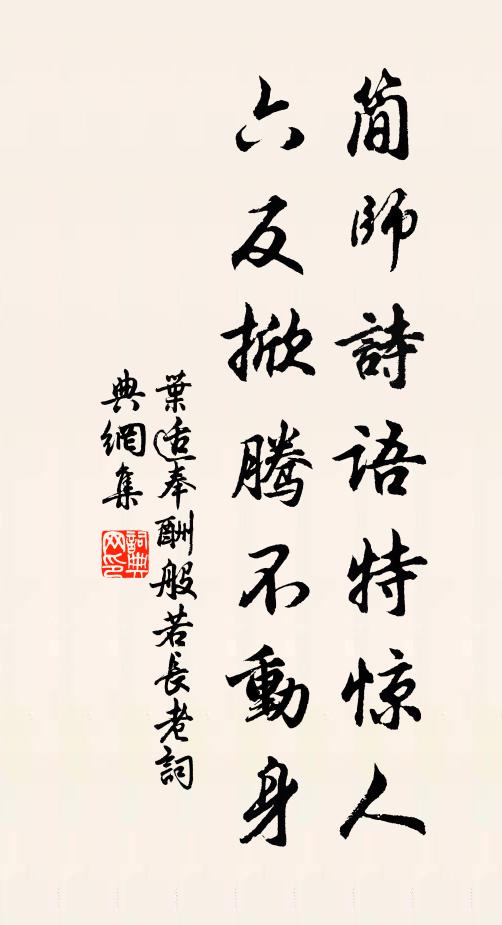 简師詩語特惊人
六反掀腾不動身
葉适奉酬般若長老詞
典網集
詞典网印